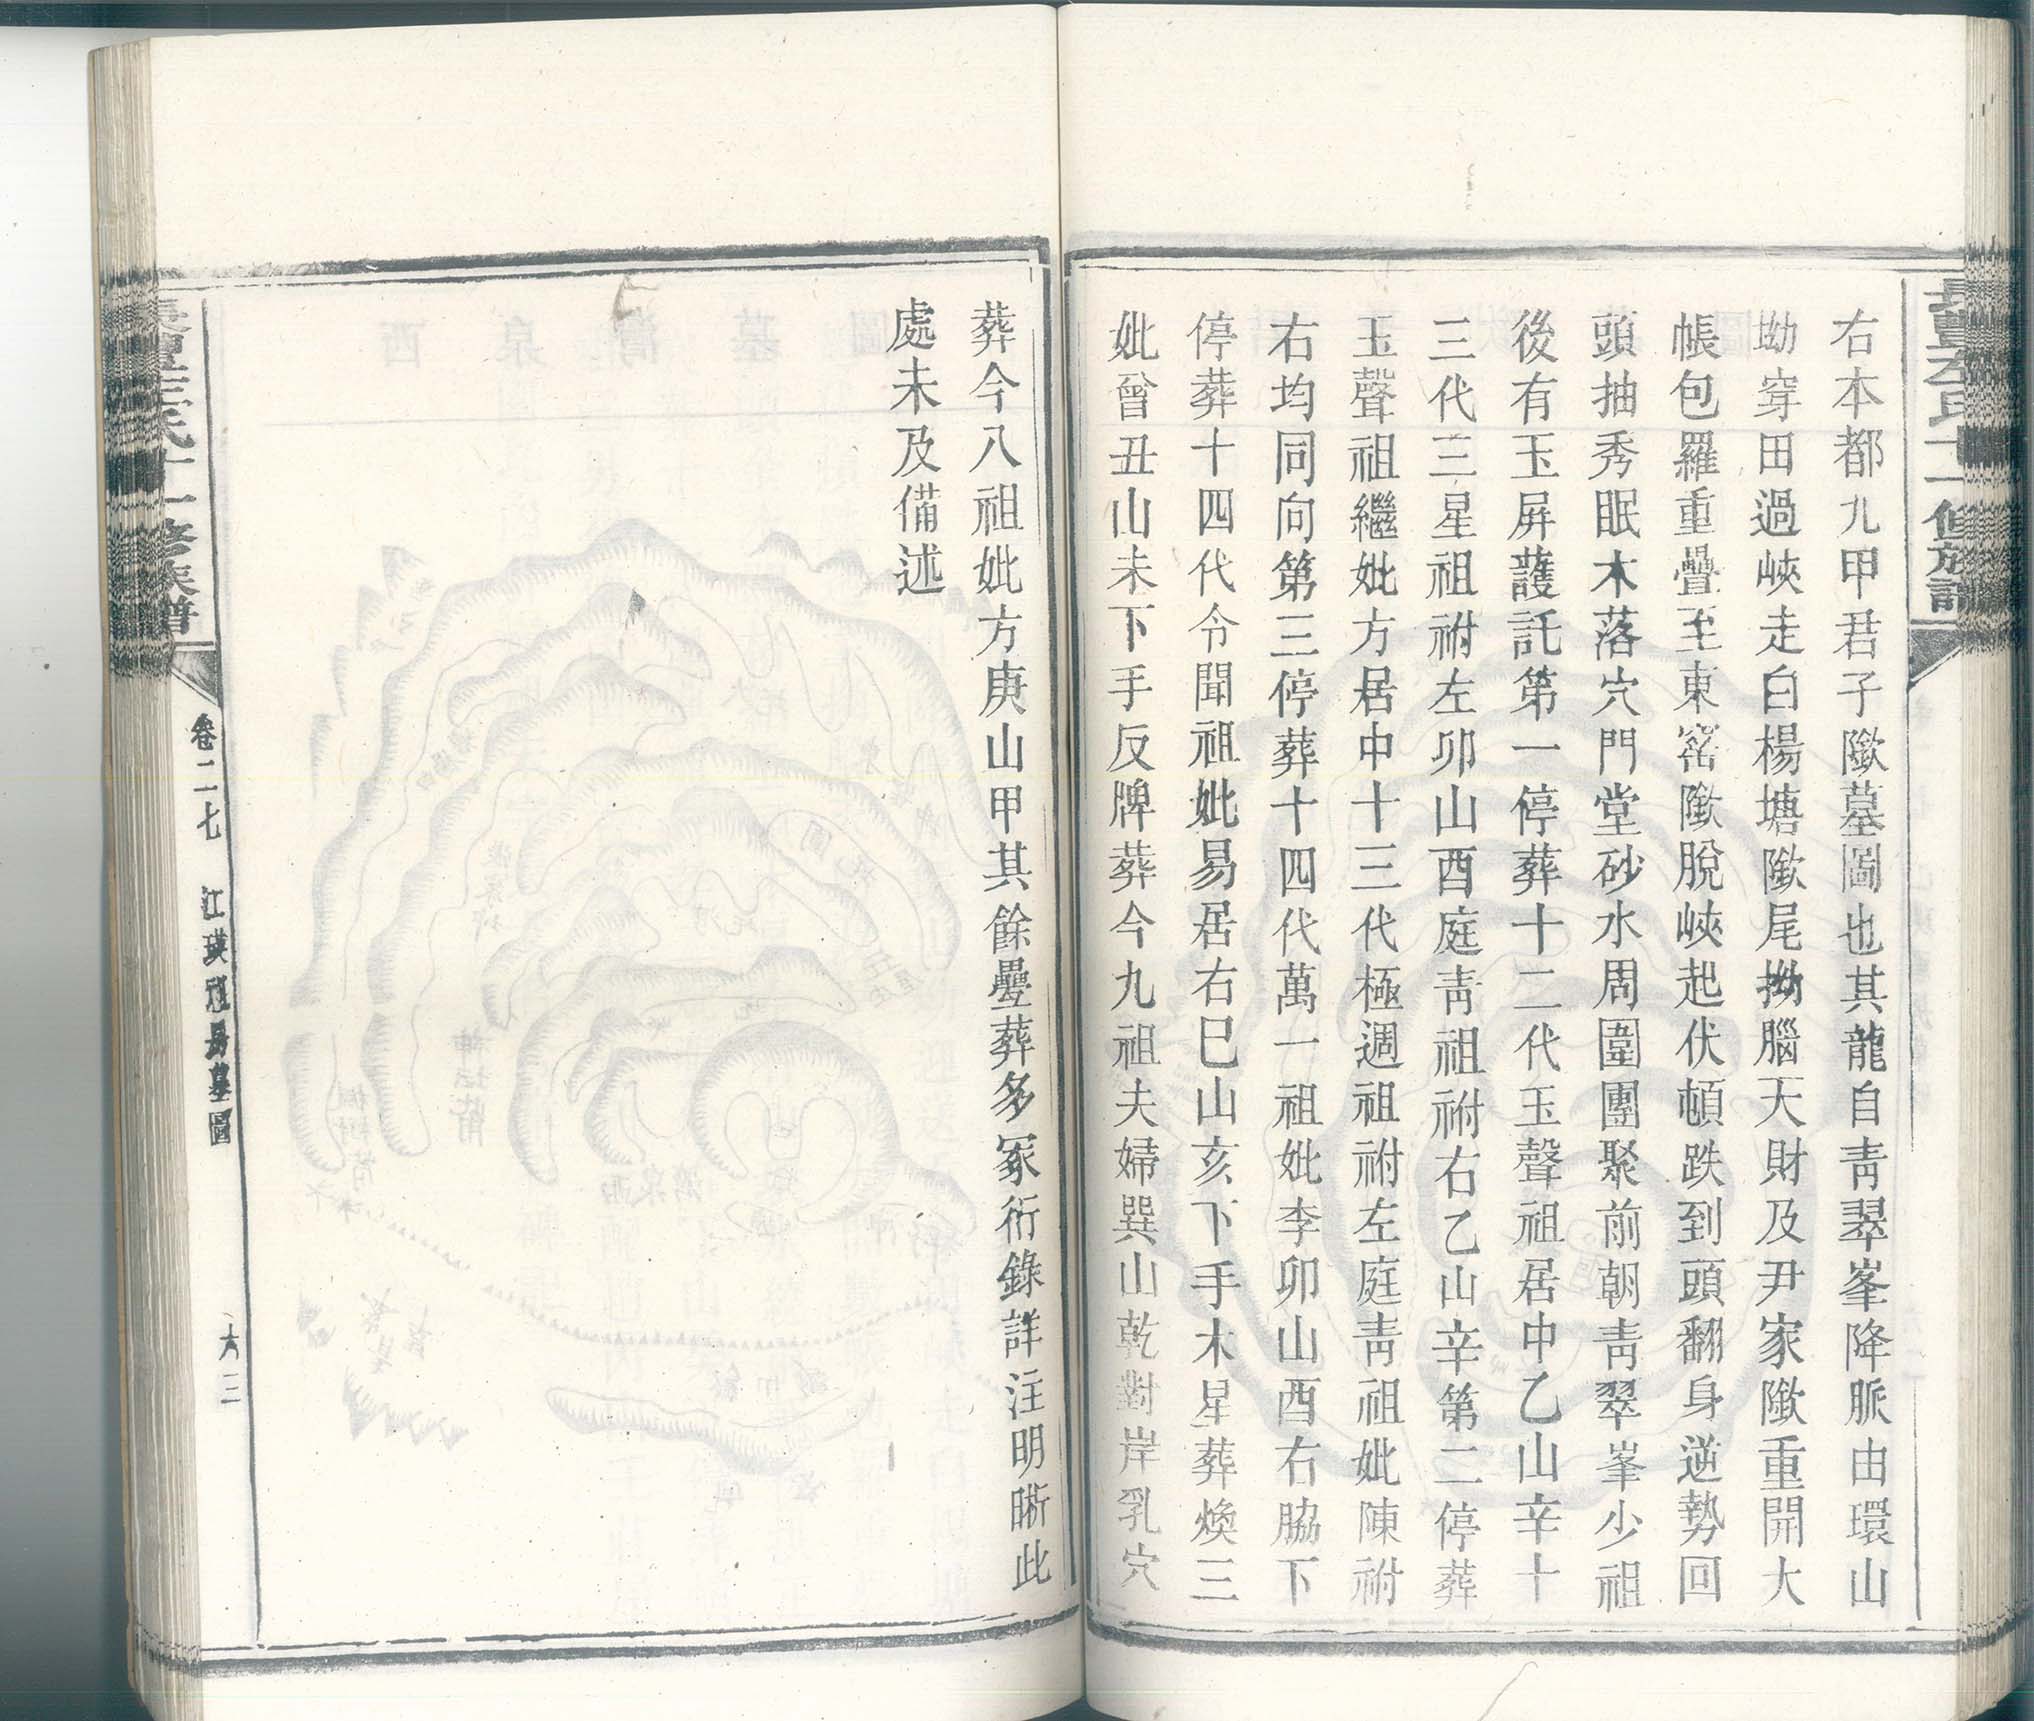 右本都九甲君子隞墓圖也其龍自青翠峯降脈由環山
坳穿田過峽走白楊塘隞尾拗腦天財及尹家隞重開大
帳包羅重疊至東窰隞脫峽起伏頓跌到頭翻身逆勢回
頭抽秀眠木落穴門堂砂水周圍團聚前朝青翠峯少祖
後有玉屏護託第一停葬十二代玉聲祖居中乙山辛十
三代三星祖祔左卯山酉庭青祖祔右乙山辛第二停葬
玉聲祖繼妣方居中十三代極週祖祔左庭青祖妣陳祔
右均同向第三停葬十四代萬一祖妣李卯山酉右脇下
停葬十四代令聞祖妣易居右巳山亥下手木星葬煥三
妣曾丑山未下手反脾葬今九祖夫婦巽山乾對岸乳穴
葬今八祖妣方庚山甲其餘疊葬多冢衍錄詳注明晣此
處未及備述
卷二七
墓圖
六三